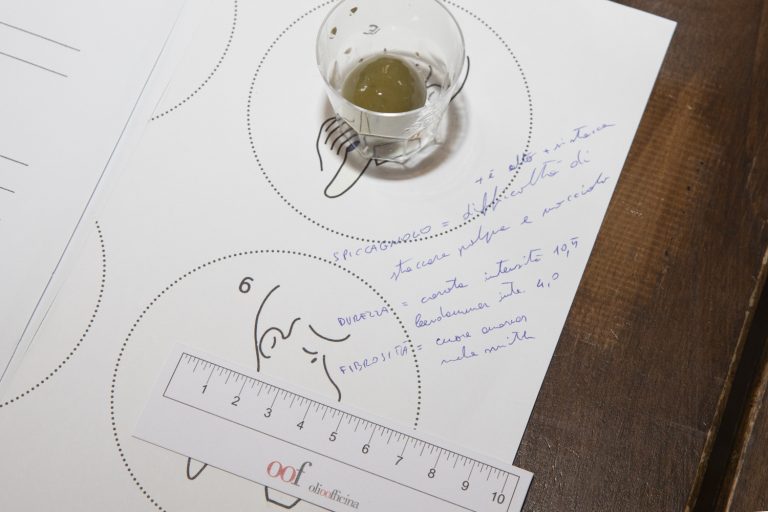 + è alto + si stacca
SPICCAGNOLO = difficoltà di
staccare polpa e nocciolo
DUREZZA = carota intensità 10,
leerdammer inte. 4,0
FIBROSITÀ = cuore ananas
mela smith
6
1 2 3 4 5 6 7 8 9 10
oof olioofficina